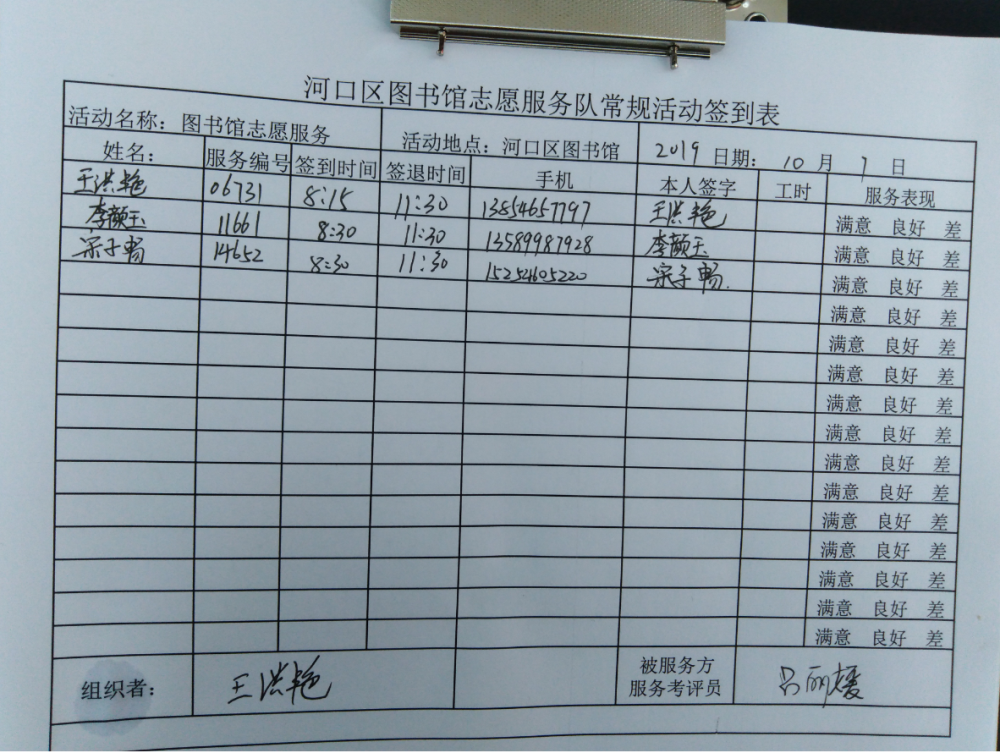 河口区图书馆志愿服务队常规活动签到表
活动名称：图书馆志愿服务 活动地点：河口区图书馆 2019 日期： 10 月 7 日
姓名： 服务编号 签到时间 签退时间 手机 本人签字 工时 服务表现
王洪艳 06731 8:15 11:30 13854657797 王洪艳 满意 良好 差
李颜玉 11661 8:30 11:30 13589987928 李颜玉 满意 良好 差
宗子畅 14652 8:30 11:30 15254605220 宗子畅 满意 良好 差
满意 良好 差
满意 良好 差
满意 良好 差
满意 良好 差
满意 良好 差
满意 良好 差
满意 良好 差
满意 良好 差
满意 良好 差
满意 良好 差
满意 良好 差
满意 良好 差
组织者： 王洪艳 被服务方 吕丽媛
服务考评员